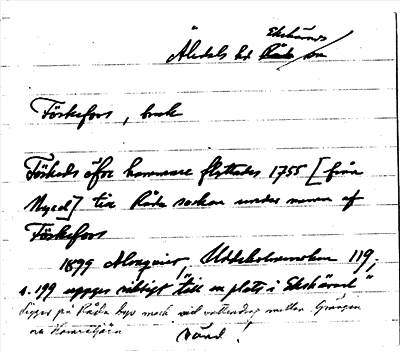 Ekshärad
Älvdals hd Råda sn
Föskefors, bruk
Föskeds öfre hammare flyttades 1755 [från
Nyed] till Råda socken under namn af
Föskefors
1899 Almquist, Uddeholmsverken 119,
s. 199 uppges riktigt "till en plats i Ekshärad"
Ligger på Råda bys mark vid vattendrag mellan Grängen
och